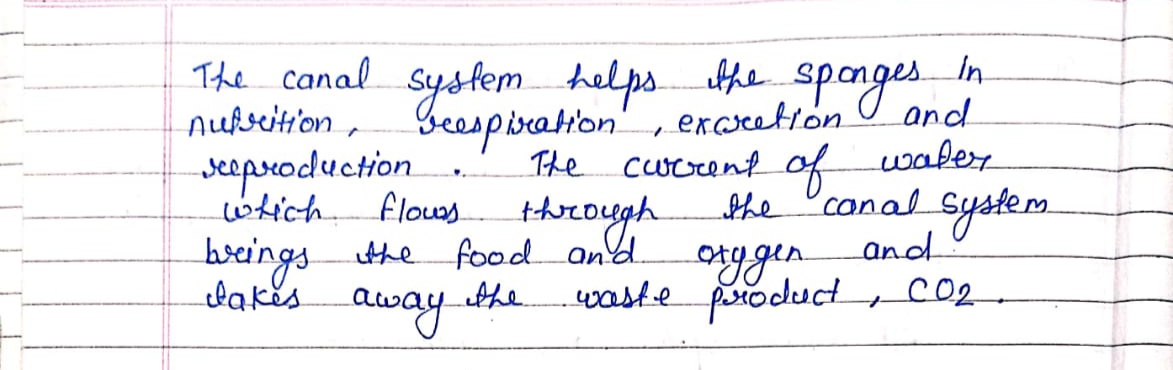 The canal system helps the sponges in
nutrition, respiration, excretion and
reproduction. The current of water
which flows through the canal system
brings the food and oxygen and
takes away the waste product, CO2.